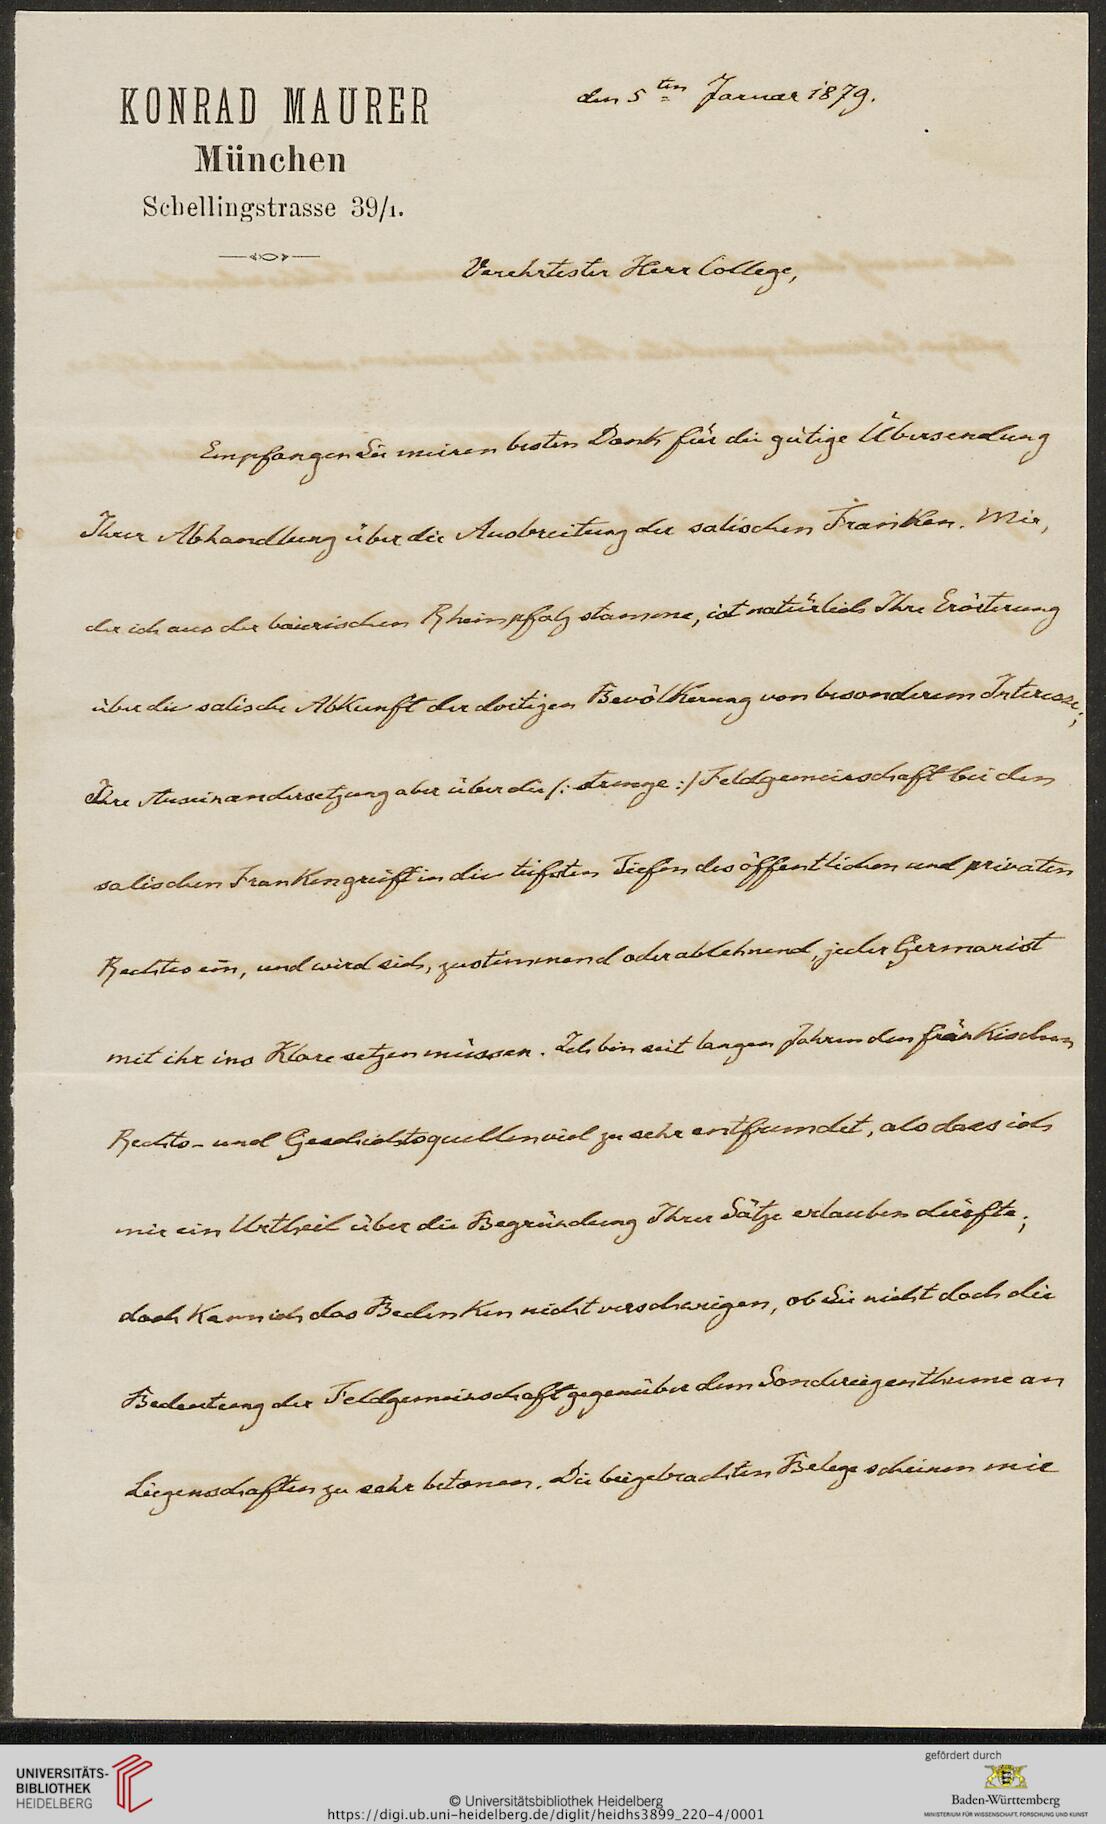 KONRAD MAURER
München
Schellingstrasse 39/1.
den 5ten Januar 1879.
Verehrtester Herr College,
Empfangen Sie meinen besten Dank für die gütige Übersendung
Ihrer Abhandlung über die Ausbreitung der salischen Franken. Mir,
der ich aus der baierischen Rheinpfalz stamme, ist natürlich Ihre Erörterung
über die salische Abkunft der dortigen Bevölkerung von besonderem Interesse;
Ihre Auseinandersetzung aber über die /: strenge :/ Feldgemeinschaft bei den
salischen Franken greift in die tiefsten Tiefen des öffentlichen und privaten
Rechtes ein, und wird sich, zustimmend oder ablehnend, jeder Germanist
mit ihr ins Klare setzen müssen. Ich bin seit langen Jahren den fränkischen
Rechts- und Geschichtsquellen viel zu sehr entfremdet, als dass ich
mir ein Urtheil über die Begründung Ihrer Sätze erlauben dürfte;
doch kann ich das Bedenken nicht verschweigen, ob Sie nicht doch die
Bedeutung der Feldgemeinschaft gegenüber dem Sondereigenthume an
Liegenschaften zu sehr betonen. Die beigebrachten Belege scheinen mir
UNIVERSITÄTS-
BIBLIOTHEK
HEIDELBERG
© Universitätsbibliothek Heidelberg
https://digi.ub.uni-heidelberg.de/diglit/heidhs3899_220-4/0001
gefördert durch
Baden-Württemberg
MINISTERIUM FÜR WISSENSCHAFT, FORSCHUNG UND KUNST